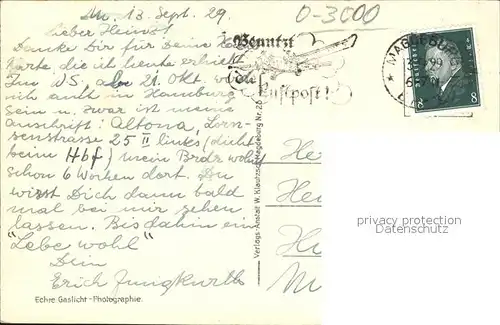 Mu. 13. Sept. 29.
Lieber Heinz!
Danke Dir für Deine
Karte die ich heute erhielt
Im WS, ab 21. Okt. 
mich auch in Hamburg
sein u. zwar ist meine
Anschrift: Altona,
senstrasse 25 II links (dicht
beim Hbf) mein Brdr wohnt
schon 6 Wochen dort. Du
wirst Dich dann bald
mal bei mir sehen
lassen. Bis dahin ein
"Lebe wohl"
Dein
Erich Jungkurth
Echte Gaslicht-Photographie.
Verlags-Anstalt W. Klautzsch, Magdeburg Nr. 26
0-3000
Benutzt
die
Luftpost!
MAGDEBURG
8 8
privacy protection
Datenschutz